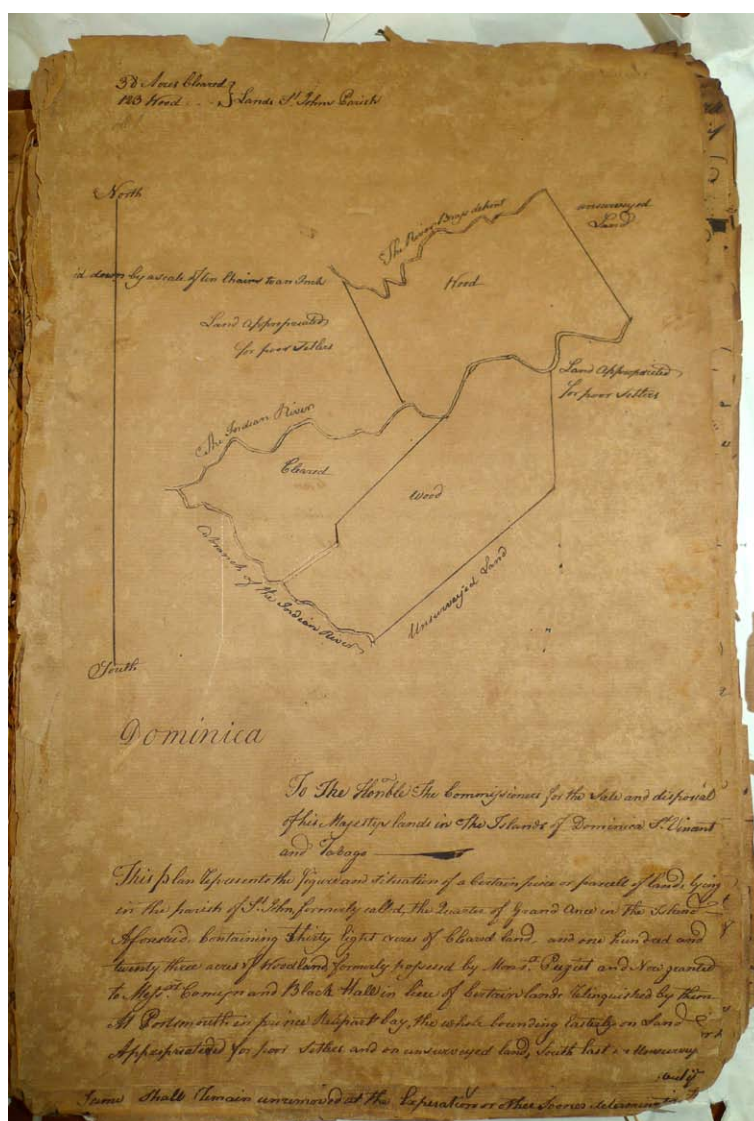 38 Acres Cleared
123 Wood . . . } Lands St. Johns Parish
North
The River Brup dehort
unsurveyed
Land
d down by a scale of ten Chains to an Inch
Wood
Land appropriated
for poor Settlers
Land Appropriated
for poor Settlers
The Indian River
Cleared
Wood
A branch of the Indian River
Unsurvey'd Land
South
Dominica
To The Honble The Commissioners for the Sale and disposal
of his Majestys lands in The Islands of Dominica St. Vincent
and Tobago
This plan Represents the figure and situation of a Certain piece or parcell of land lying
in the parish of St. John formerly called, the Quarter of Grand Ance in the Island
Aforesaid. Containing thirty Eight acres of Cleared land and one hundred and
twenty three acres of Woodland formerly possessed by Monsr. and Now granted
to Messrs. and Black Hall in lieu of Certain lands Relinquished by them
At Portsmouth in prince Ruperts bay, the whole bounding Easterly on Land
Appropriated for poor Settlers and on unsurveyed land, South East
Same shall Remain unremoved at the Experation or other Sooner determination